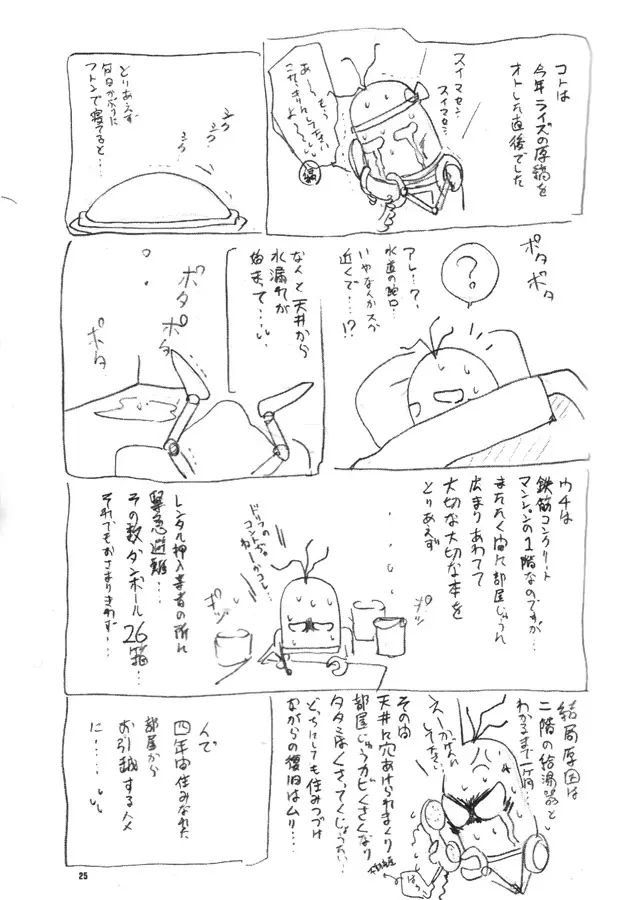 コトは
今年ライズの原稿を
オトした直後でした
スイマセン
スイマセン…
あ〜〜もう
とりあえず
何日かぶりに
フトンで寝てると…
ボタ
ボタ
?
アレ…?
水道の蛇口…
いやなんかスガ
近くで…!?
なんと天井から
水漏れが
始まって……
ボタ
ボタ
ポタ
ポタ
ウチは
鉄筋コンクリート
マンションの1階なのですが…
またたく間に部屋じゅうに
広まりあわてて
大切な大切な本を
とりあえず
ポッ
ポッ
ドリフの
コントか
コレ…
レンタル押入業者の所に
緊急避難…
その数ダンボール26箱…
それでもおさまりきわず…
結局原因は
二階の給湯器と
わかるまで一ヶ月…
その間
天井に穴あけられまくり
部屋じゅうカビくさくなり
タタミはくさってくじょうたい…
どっちにしても住みつづけ
ながらの復旧はムリ…
んで
四年間住みなれた
部屋から
お引越するハメ
に……
25